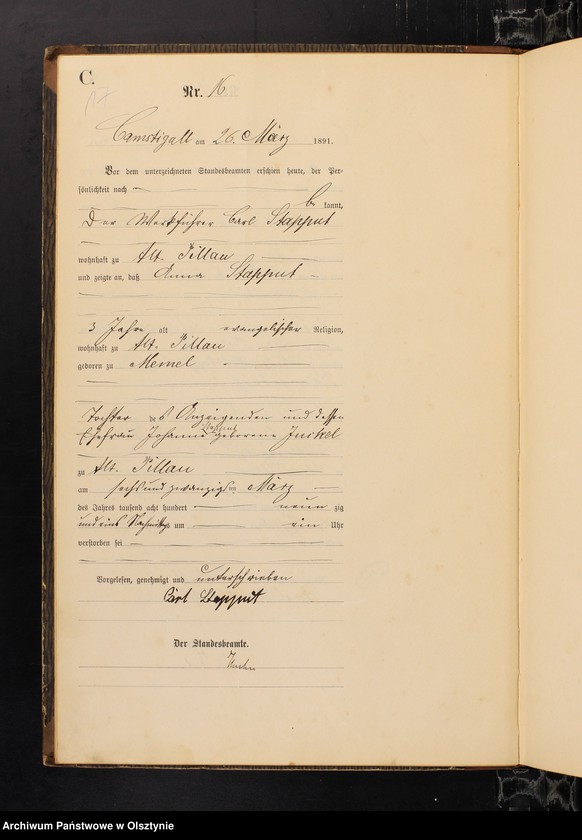 C.
17
Nr. 16.
Camstigall am 26. März 1891.
Vor dem unterzeichneten Standesbeamten erschien heute, der Per-
sönlichkeit nach
be kannt,
Der Werkführer Carl Stapput
wohnhaft zu Alt. Pillau
und zeigte an, daß Anna Stapput
3 Jahre alt evangelischer Religion,
wohnhaft zu Alt. Pillau
geboren zu Memel
Tochter des Anzeigenden und dessen
Stapput
Ehefrau Johanne geborene
zu Alt. Pillau
am sechsundzwanzigsten März
des Jahres tausend acht hundert neun zig
und eins Nachmittags um ein Uhr
verstorben sei
Vorgelesen, genehmigt und unterschrieben
Carl Stapput
Der Standesbeamte.
Archiwum Państwowe w Olsztynie